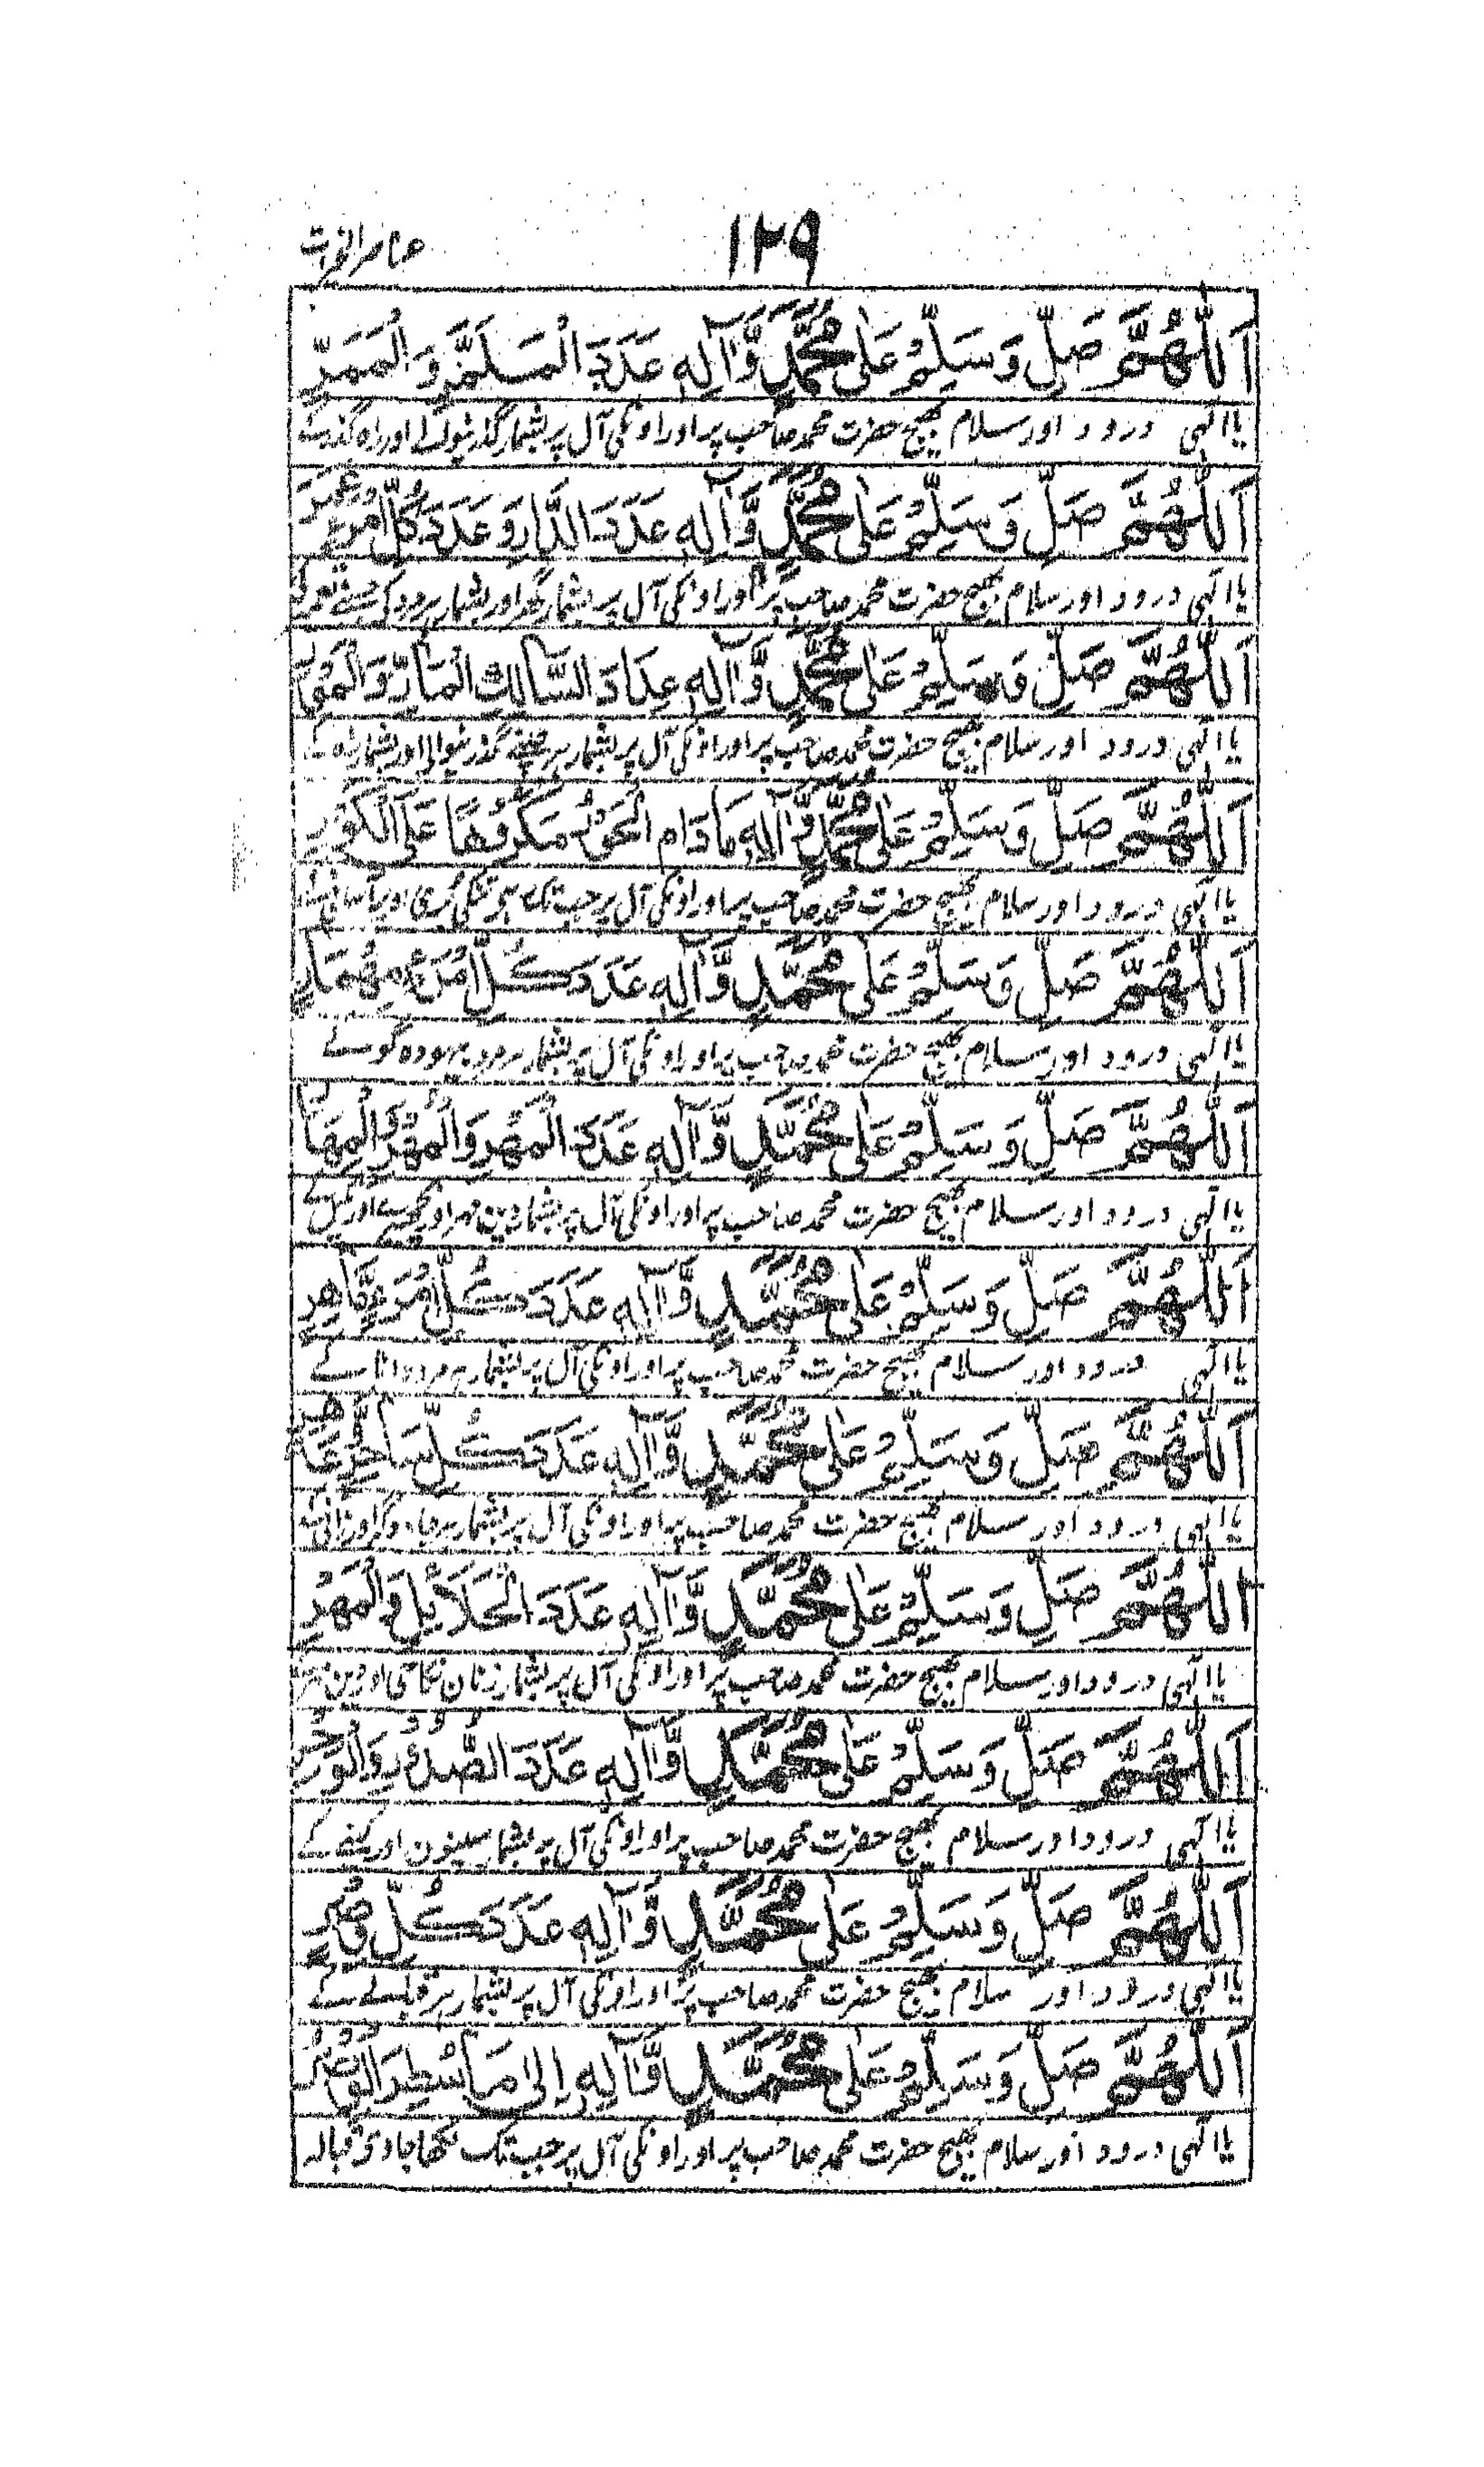 ١٢٩
اَللّٰهُمَّ صَلِّ وَسَلِّمْ عَلٰى مُحَمَّدٍ وَّاٰلِهٖ عَدَدَ وَالْمَمَرِّ
یا الٰہی درود اور سلام بھیج حضرت محمد صاحب پر اور اونکی آل پر بشمار اور راہ
اَللّٰهُمَّ صَلِّ وَسَلِّمْ عَلٰى مُحَمَّدٍ وَّاٰلِهٖ عَدَدَ الدَّارِ وَعَدَدَ كُلِّ
یا الٰہی درود اور سلام بھیج حضرت محمد صاحب پر اور اونکی آل پر بشمار گھر اور بشمار ہر مرد کی
اَللّٰهُمَّ صَلِّ وَسَلِّمْ عَلٰى مُحَمَّدٍ وَّاٰلِهٖ عِدَادَ السَّالِكِ الْمَارِّ
یا الٰہی درود اور سلام بھیج حضرت محمد صاحب پر اور اونکی آل پر بشمار ہر چلنے گذرنیوالے اور بشمار راہ کے
اَللّٰهُمَّ صَلِّ وَسَلِّمْ عَلٰى مُحَمَّدٍ وَّاٰلِهٖ مَا دَامَ
یا الٰہی درود اور سلام بھیج حضرت محمد صاحب پر اور اونکی آل پر جب تک
اَللّٰهُمَّ صَلِّ وَسَلِّمْ عَلٰى مُحَمَّدٍ وَّاٰلِهٖ عَدَدَ كُلِّ مِهْمَارٍ
یا الٰہی درود اور سلام بھیج حضرت محمد صاحب پر اور اونکی آل پر بشمار مرد بیہودہ گو کے
اَللّٰهُمَّ صَلِّ وَسَلِّمْ عَلٰى مُحَمَّدٍ وَّاٰلِهٖ عَدَدَ الْمَهْرِ وَالْمُهْرِ
یا الٰہی درود اور سلام بھیج حضرت محمد صاحب پر اور اونکی آل پر بشمار دین مہر اور
اَللّٰهُمَّ صَلِّ وَسَلِّمْ عَلٰى مُحَمَّدٍ وَّاٰلِهٖ عَدَدَ كُلِّ
یا الٰہی درود اور سلام بھیج حضرت محمد صاحب پر اور اونکی آل پر بشمار ہر مرد دانا کے
اَللّٰهُمَّ صَلِّ وَسَلِّمْ عَلٰى مُحَمَّدٍ وَّاٰلِهٖ عَدَدَ كُلِّ سَاحِرٍ
یا الٰہی درود اور سلام بھیج حضرت محمد صاحب پر اور اونکی آل پر بشمار ہر جادوگر اور
اللّٰهُمَّ صَلِّ وَسَلِّمْ عَلٰى مُحَمَّدٍ وَّاٰلِهٖ عَدَدَ الْحَلَائِلِ وَالْمَهْرِ
یا الٰہی درود اور سلام بھیج حضرت محمد صاحب پر اور اونکی آل پر بشمار زنان نکاحی اور دین مہر
اَللّٰهُمَّ صَلِّ وَسَلِّمْ عَلٰى مُحَمَّدٍ وَّاٰلِهٖ عَدَدَ الصُّدُوْرِ
یا الٰہی درود اور سلام بھیج حضرت محمد صاحب پر اور اونکی آل پر بشمار سینون اور کے
اَللّٰهُمَّ صَلِّ وَسَلِّمْ عَلٰى مُحَمَّدٍ وَّاٰلِهٖ عَدَدَ كُلِّ
یا الٰہی درود اور سلام بھیج حضرت محمد صاحب پر اور اونکی آل پر بشمار ہر کے
اَللّٰهُمَّ صَلِّ وَسَلِّمْ عَلٰى مُحَمَّدٍ وَّاٰلِهٖ اِلٰى مَا
یا الٰہی درود اور سلام بھیج حضرت محمد صاحب پر اور اونکی آل پر جب تک لکھا جاوے قبالہ